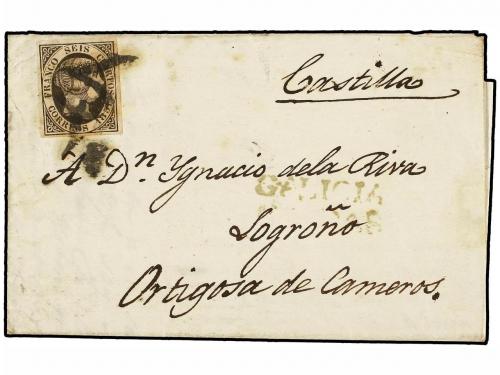 FRANCO SEIS CUARTOS
CORREOS 1851
Castilla
A Dn. Ygnacio de la Riva
GALICIA
Logroño
Ortigosa de Cameros.